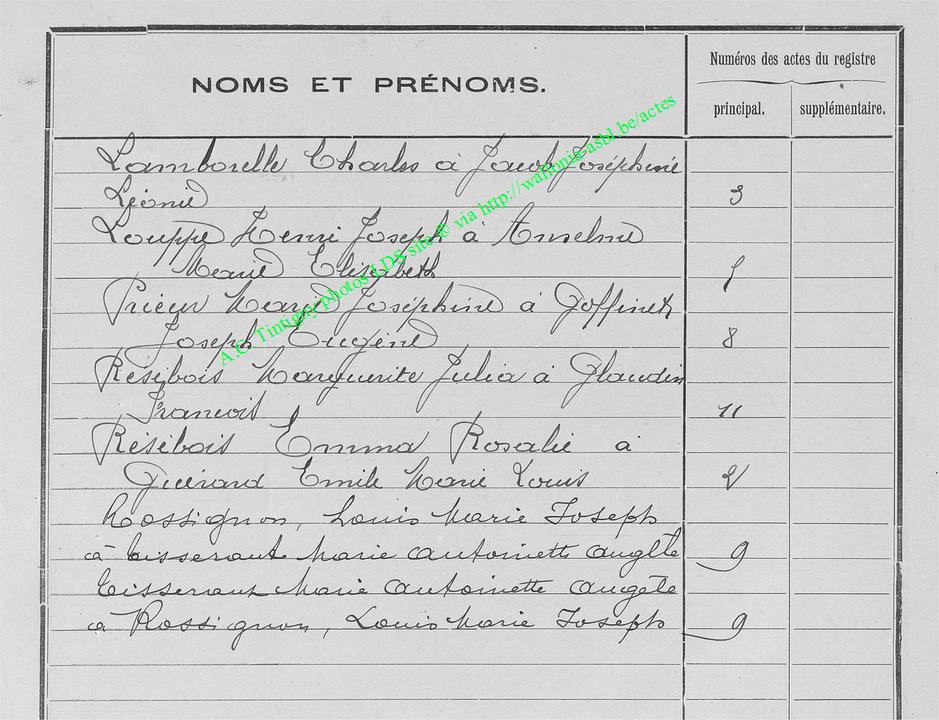 NOMS ET PRÉNOMS.
Numéros des actes du registre
principal.
supplémentaire.
Lamborelle Charles à Jacob Joséphine
Léonie 3
Louppe Henri Joseph à Anselme
Marie Elisabeth
Prieur Marie Joséphine à Goffinet
Joseph Eugène 8
Résibois Marguerite Julia à Glaudin
Francois 11
Résibois Emma Rosalie à
Guérard Emile Marie Louis 2
Rossignon, Louis Marie Joseph
à Tisserant Marie Antoinette Angèle 9
Tisserant Marie Antoinette Angèle
à Rossignon, Louis Marie Joseph 9
A.C. Tintigny photos LDS site ® via http://wallonia-asbl.be/actes